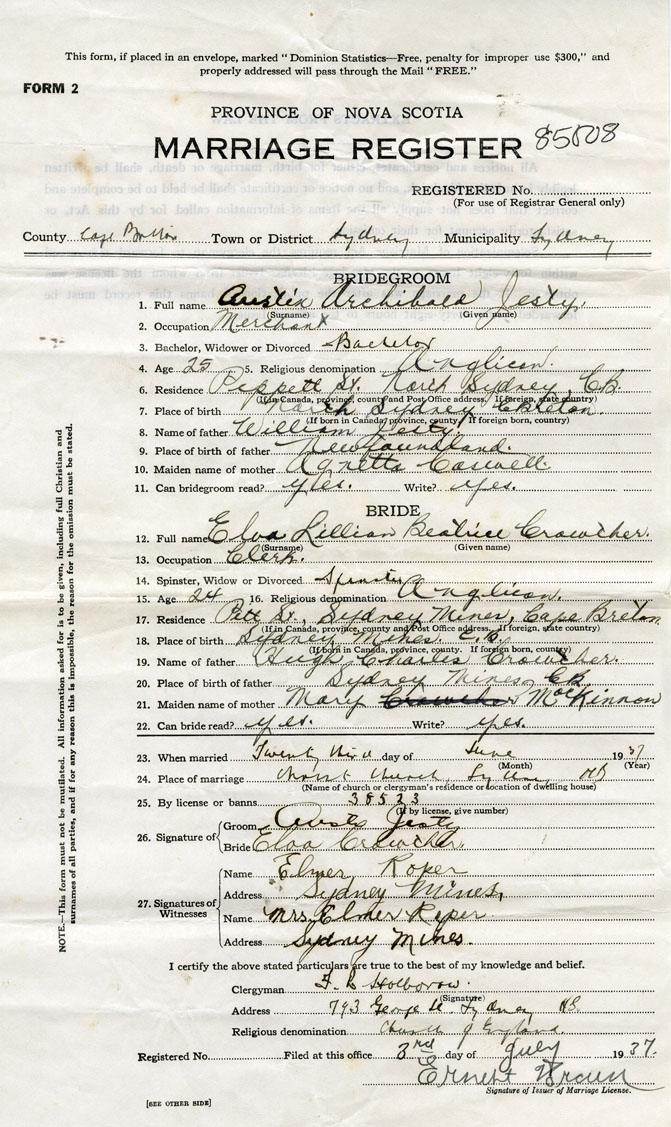 This form, if placed in an envelope, marked "Dominion Statistics—Free, penalty for improper use $300," and
properly addressed will pass through the Mail "FREE."
FORM 2
PROVINCE OF NOVA SCOTIA
MARRIAGE REGISTER 85808
REGISTERED No.
(For use of Registrar General only)
County Cape Breton Town or District Sydney Municipality Sydney
BRIDEGROOM
1. Full name Austin Archibald Jesty.
(Surname) (Given name)
2. Occupation Merchant
3. Bachelor, Widower or Divorced Bachelor
4. Age 25 5. Religious denomination Anglican.
6. Residence Peppett St. North Sydney, CB.
(If in Canada, province, county and Post Office address. If foreign, state country)
7. Place of birth North Sydney C Breton.
(If born in Canada, province, county. If foreign born, country)
8. Name of father William Jesty.
9. Place of birth of father Newfoundland.
10. Maiden name of mother Agnetta Caswell.
11. Can bridegroom read? Yes. Write? Yes.
BRIDE
12. Full name Elva Lillian Beatrice Crowcher.
(Surname) (Given name)
13. Occupation Clerk.
14. Spinster, Widow or Divorced Spinster
15. Age 24 16. Religious denomination Anglican.
17. Residence Pitt St., Sydney Mines, Cape Breton
(If in Canada, province, county and post Office address. If foreign, state country)
18. Place of birth Sydney Mines. C.B.
(If born in Canada, province, county. If foreign born, country)
19. Name of father Hugh Charles Crowcher.
20. Place of birth of father Sydney Mines, CB.
21. Maiden name of mother Mary Crowcher MacKinnon
22. Can bride read? Yes. Write? Yes.
23. When married Twenty third day of June 1937
(Month) (Year)
24. Place of marriage Christ Church, Sydney NS
(Name of church or clergyman's residence or location of dwelling house)
25. By license or banns 38523
(If by license, give number)
26. Signature of
Groom Austin Jesty
Bride Elva Crowcher
27. Signatures of Witnesses
Name Elmer Roper
Address Sydney Mines,
Name Mrs. Elmer Roper
Address Sydney Mines.
I certify the above stated particulars are true to the best of my knowledge and belief.
Clergyman Holborow.
(Signature)
Address 793 George St. Sydney NS.
Religious denomination Church of England.
Registered No. Filed at this office 3rd day of July 1937.
Ernest Brown
Signature of Issuer of Marriage License.
[SEE OTHER SIDE]
NOTE.—This form must not be mutilated. All information asked for is to be given, including full Christian and
surnames of all parties, and if for any reason this is impossible, the reason for the omission must be stated.